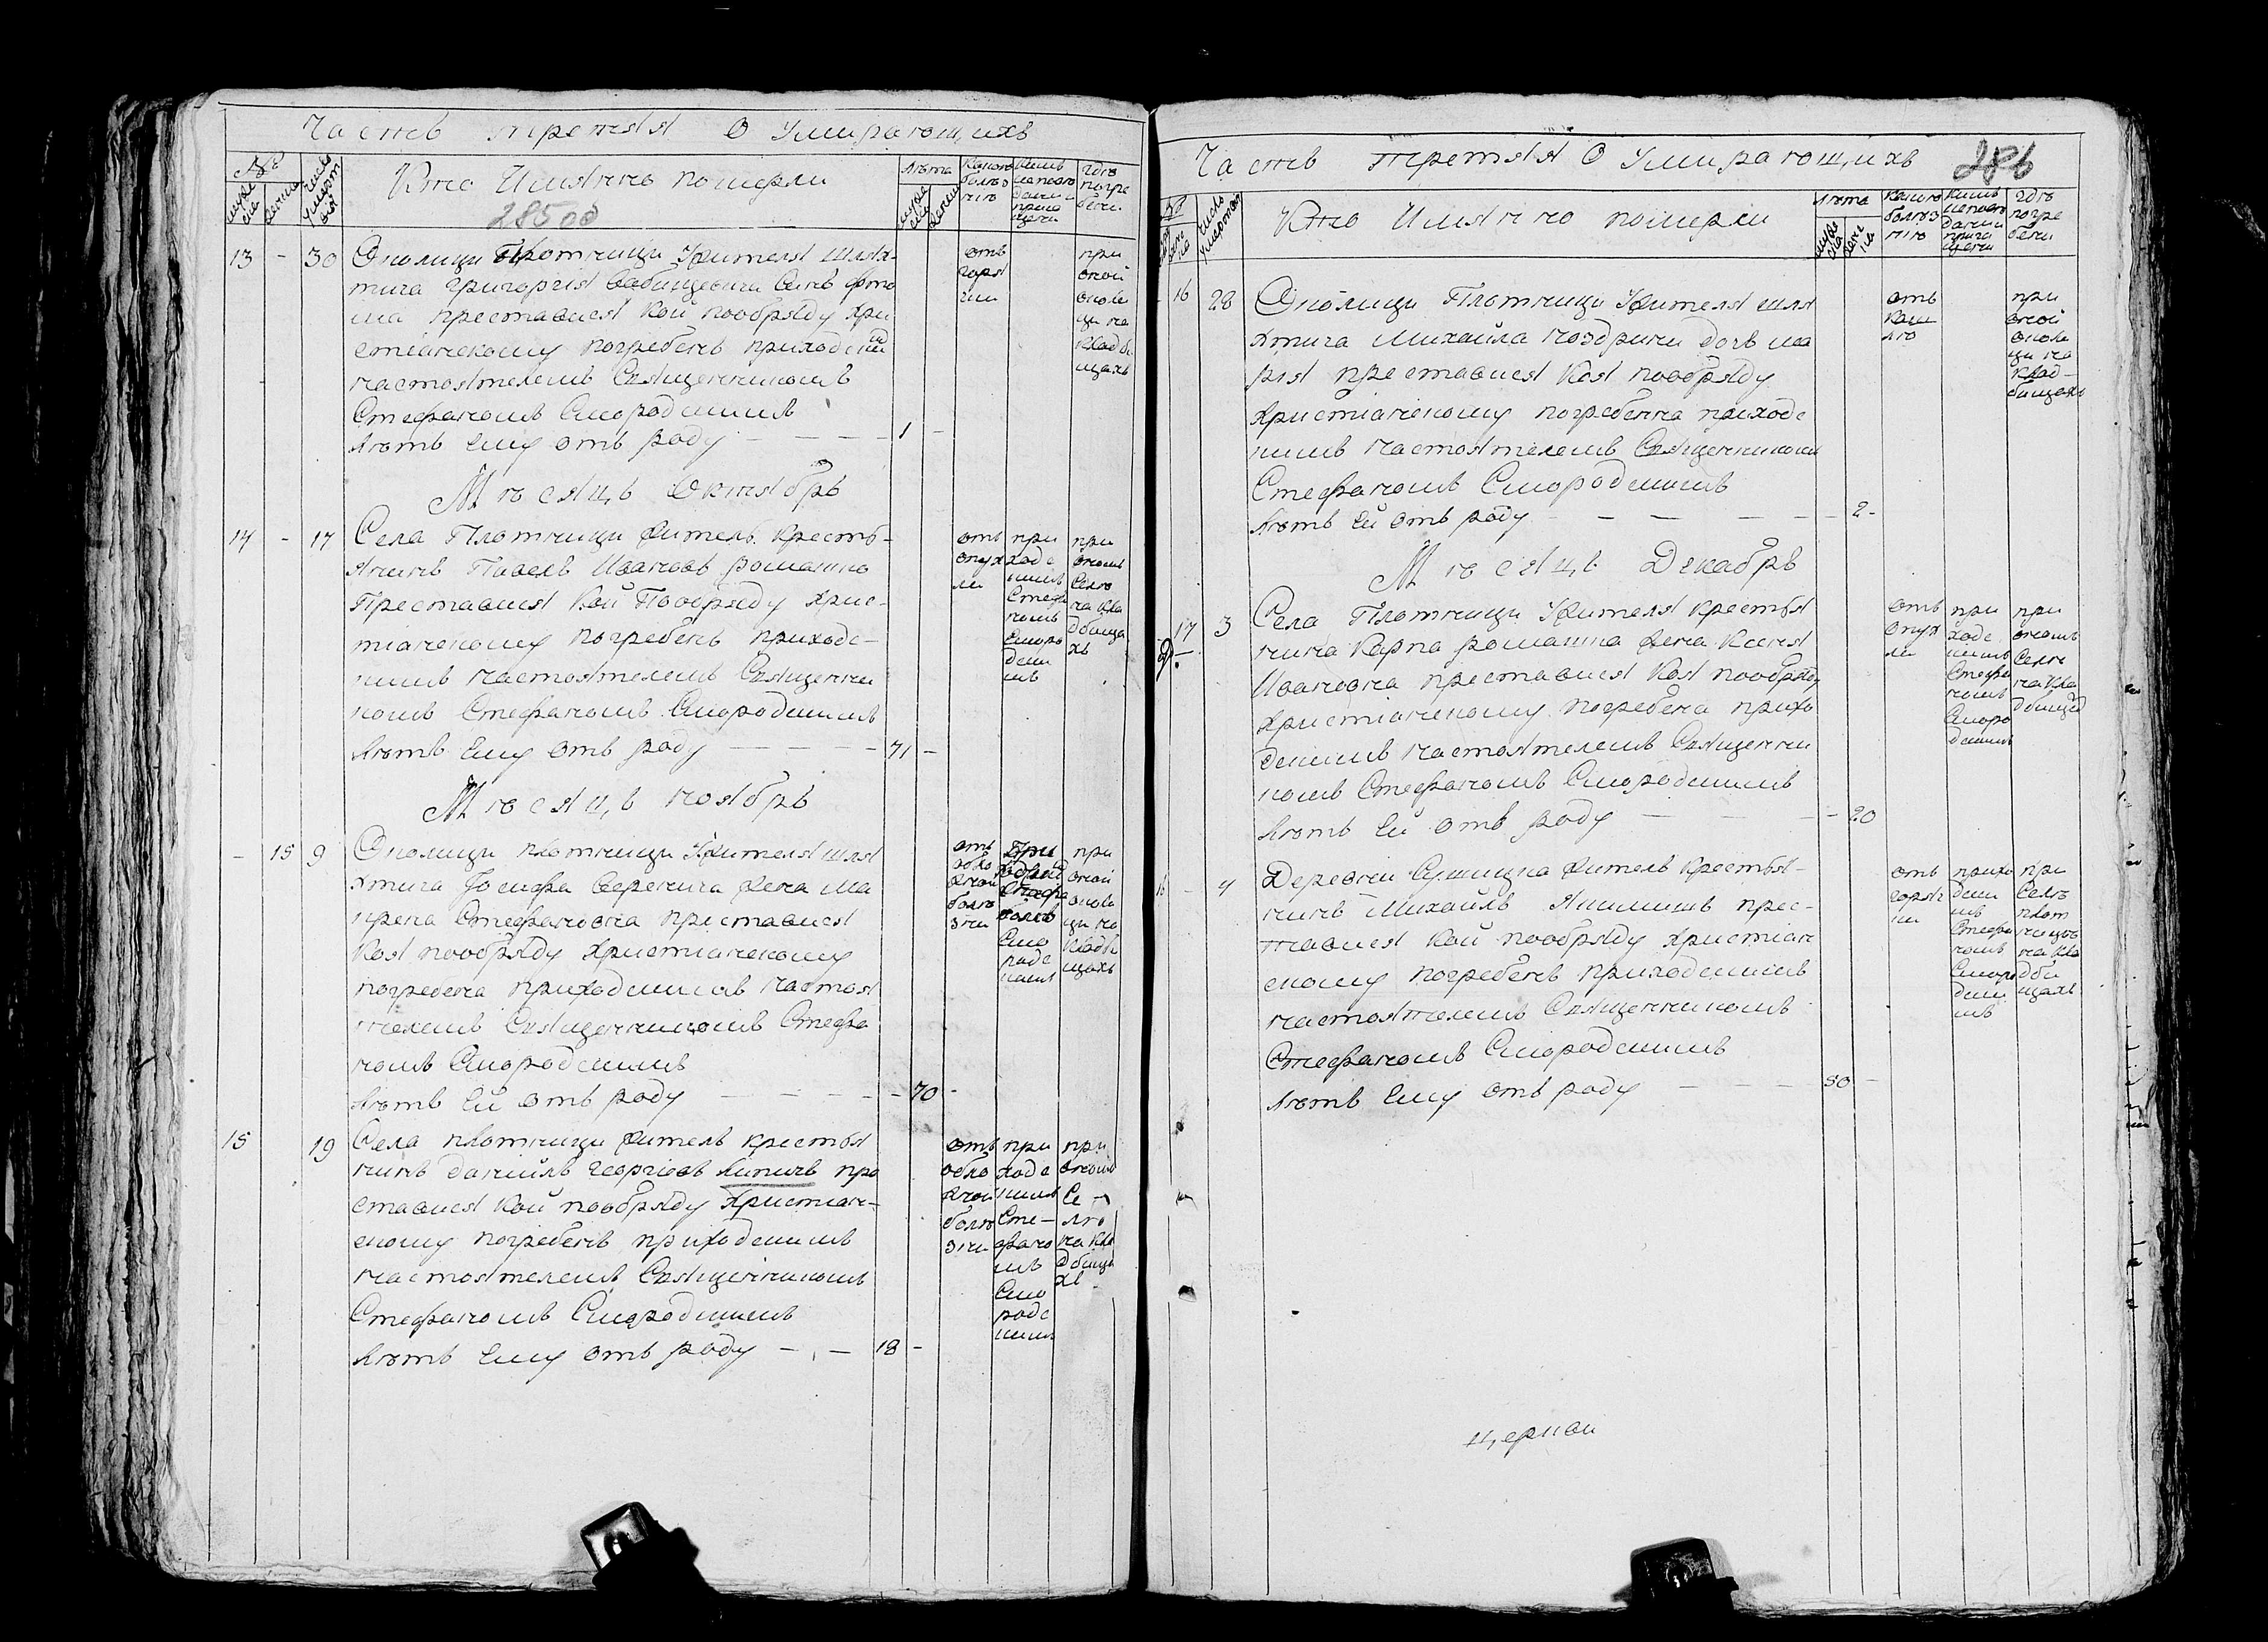 Часть третяя О Умирающихъ
№
муже ска женска
Число умертвія
Кто Имянно померли
285 об
Лѣта
муже ска женска
Какою болѣзнію
Кѣмъ исповѣданы и приащены
Гдѣ погребены
13 - 30 Околицы Плотницы Жителя шлях-
тича Григорія сынъ Фто
ма преставися кой пообряду Хри
стіанскому погребенъ приходскимъ
настоятелемъ Священникомъ
Стефаномъ Смородскимъ
Лѣтъ Ему отъ роду - - - - 1 -
отъ
горя
чки
при
оной
околи
цы на
кладби
щахъ
Мѣсяцъ Октябрь
14 - 17 Села Плотницы житель Кресть-
янинъ Павелъ Ивановъ Романко
Преставися кой Пообряду Хрис-
тіанскому погребенъ приходс-
кимъ настоятелемъ Священни
комъ Стефаномъ Смородскимъ
Лѣтъ Ему отъ роду - - - - 71 -
отъ
опух
ли
при
ходс
кимъ
Стефа
номъ
Сморо
дски
мъ
при
ономъ
Селѣ
на кла
дбища
хъ
Мѣсяцъ ноябрь
- 15 9 Околицы плотницы Жителя шля
хтича Іосифа Веренича жена Ма
крена Стефановна преставися
коя пообряду Христіанскому
погребена приходскимъ настоя
телемъ Священникомъ Стефа
номъ Смородскимъ
Лѣтъ Ей отъ роду - - - - 70 -
отъ
обло
жной
болѣ
зни
Смо
родс
кимъ
при
оной
околи
цы на
кладби
щахъ
15 19 Села плотницы житель крестья
нинъ Даніилъ Георгіевъ Липичъ пре
ставися кой пообряду Христіан-
скому погребенъ приходскимъ
настоятелемъ Священникомъ
Стефаномъ Смородскимъ
Лѣтъ Ему отъ роду - - 18 -
отъ
обло
жной
болѣ
зни
при
ходс
кимъ
Сте-
фано
мъ
Смо
родс
кимъ
при
ономъ
Се-
лѣ
на кла
дбища
хъ
Часть третяя О Умирающихъ 286
№
Число умертвія
Кто Имянно померли
Лѣта
муже ска жен ска
Какою болѣзнію
Кѣмъ исповѣданы и приащены
Гдѣ погребены
- 16 28 Околицы Плотницы Жителя шля
хтича Михаила Ноздрини дочь Ма
рія преставися коя пообряду
Христіанскому погребенна приходс
кимъ настоятелемъ Священникомъ
Стефаномъ Смородскимъ
Лѣтъ Ей отъ роду - - - - 2 -
отъ
каш
лю
при
оной
околи
цы на
клад-
бищахъ
Мѣсяцъ Декабрь
- 17 3 Села Плотницы Жителя крестья
нина Карпа Романка жена Ксеня
Ивановна преставися коя пообряду
Христіанскому погребена прихо
дскимъ настоятелемъ Священни
комъ Стефаномъ Смородскимъ
Лѣтъ Ей отъ роду - - - 20
отъ
опух
ли
при
ходс
кимъ
Стефа
номъ
Сморо
дскимъ
при
ономъ
Селѣ
на кла
дбищах
16 - 4 Деревни житель Крестья-
нинъ Михаилъ прес-
тавися кой пообряду Христіан
скому погребенъ приходскимъ
настоятелемъ Священникомъ
Стефаномъ Смородскимъ
Лѣтъ Ему отъ роду - - - 80 -
отъ
горяч
ки
прихо
дски
мъ
Стефа
номъ
Сморо
дски
мъ
при
Селѣ
плот
ницы
на кла
дби
щахъ
церкви